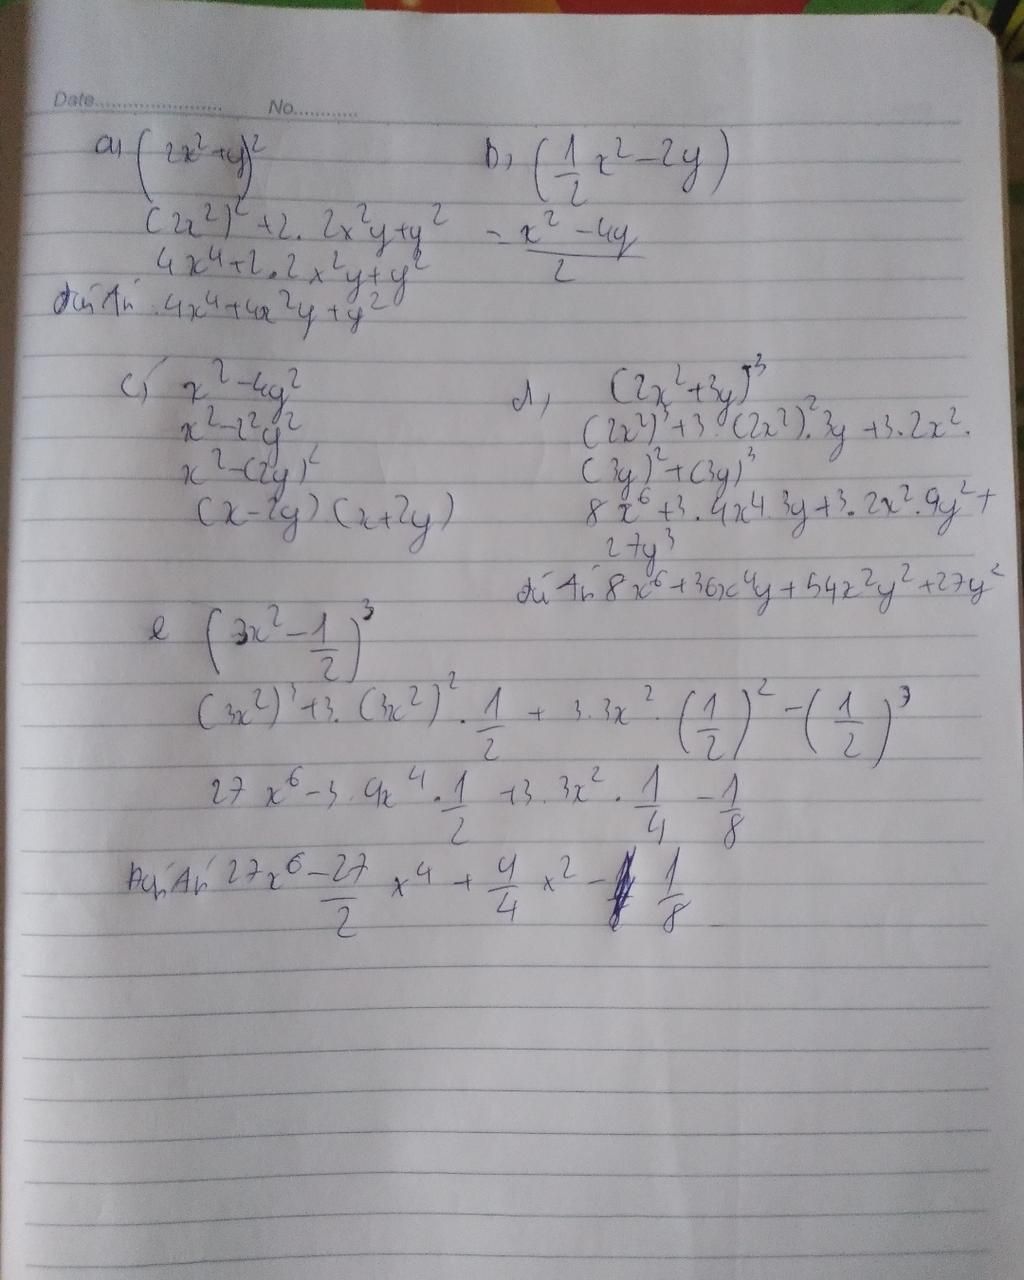 Date........................ No............
a, (2x²+y)²
(2x²)²+2.2x²y+y²
4x⁴+2.2x²y+y²
4x⁴+4x²y+y²
b, (1/2 x²-2y)
= (x²-4y)/2
c, x²-4y²
x²-2²y²
x²-(2y)²
(x-2y).(x+2y)
d, (2x²+3y)³
(2x²)³+3.(2x²)².3y+3.2x².
(3y)²+(3y)³
8x⁶+3.4x⁴.3y+3.2x².9y²+
27y³
8x⁶+36x⁴y+54x²y²+27y²
e (3x²-1/2)³
(3x²)³+3.(3x²)².1/2+3.3x².(1/2)²-(1/2)³
27x⁶-3.9x⁴.1/2+3.3x².1/4-1/8
27x⁶-27/2 x⁴+9/4 x²-1/8